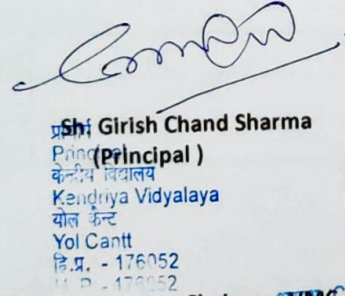 Sh. Girish Chand Sharma
प्राचार्य
Principal
(Principal )
केन्द्रीय विद्यालय
Kendriya Vidyalaya
योल कैन्ट
Yol Cantt
हि.प्र. - 176052
H.P. - 176052